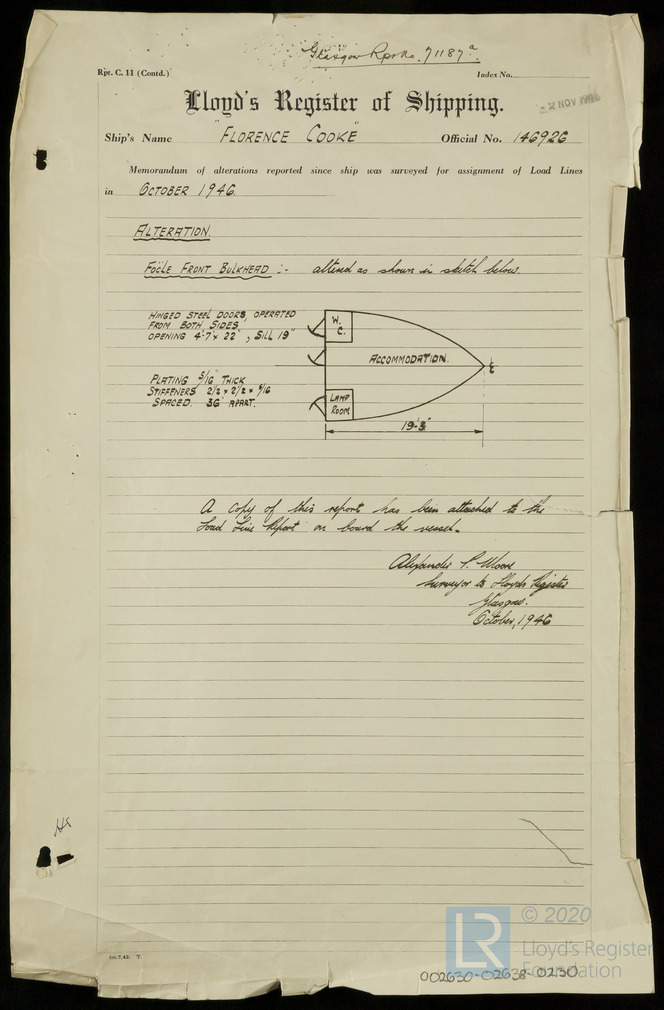 Glasgow Rpt No. 71187a.
Rpt. C. 11 (Contd.)
Index No.
Lloyd's Register of Shipping.
-2 NOV 1946
Ship's Name "FLORENCE COOKE" Official No. 146926
Memorandum of alterations reported since ship was surveyed for assignment of Load Lines
in OCTOBER 1946.
ALTERATION.
FOC'LE FRONT BULKHEAD :- altered as shown in sketch below.
HINGED STEEL DOORS, OPERATED
FROM BOTH SIDES.
OPENING 4'-7" x 22", SILL 19"
W.
C.
ACCOMMODATION.
PLATING 5/16" THICK
STIFFENERS 2 1/2 x 2 1/2 x 5/16
SPACED 36" APART.
LAMP
ROOM
19'-3"
A copy of this report has been attached to the
Load Line Report on board the vessel.
Alexander P. Moore
Surveyor to Lloyds Register
Glasgow.
October, 1946
7,42. T.
© 2020
LR
Lloyd's Register
Foundation
002630-02638-0230